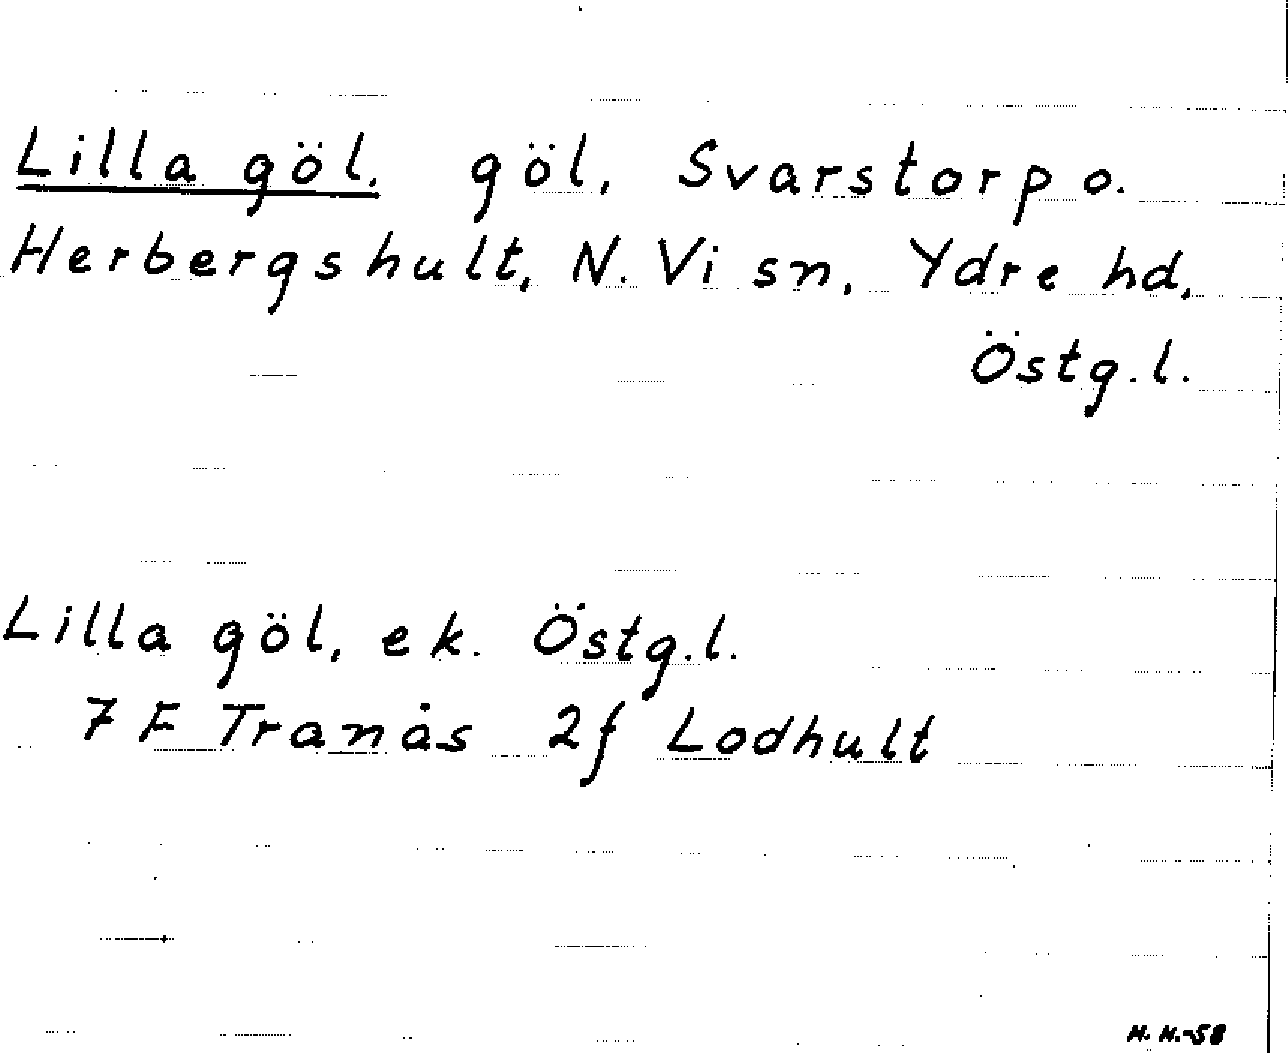 Lilla göl, göl, Svarstorp o.
Herbergshult, N. Vi sn, Ydre hd,
Östg.l.
Lilla göl, ek. Östg.l.
7 F Tranås 2f Lodhult
M. M.-58